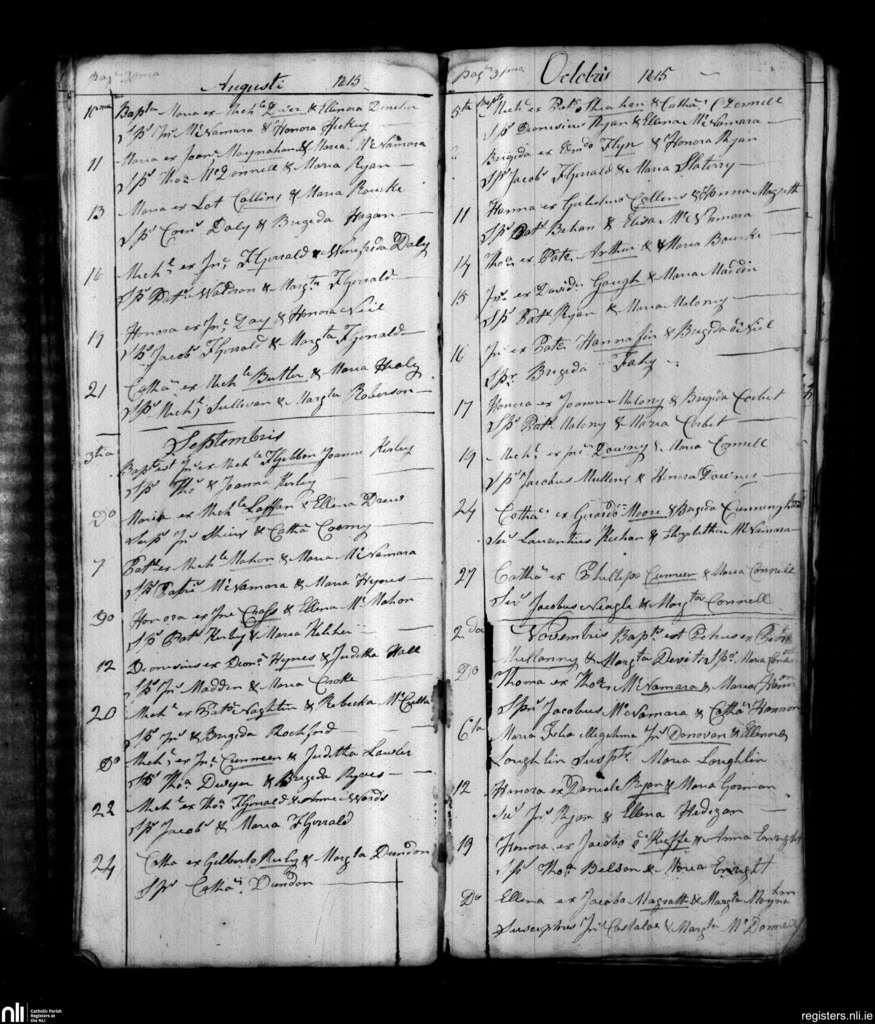 Augusti 1815
Bapta Maria ex Michle & Elinora
Sps Jno McNamara & Honora Hickey
11 Maria ex Joane Moynahan & Maria McNamara
Sps Thos McDonnell & Maria Ryan
13 Maria ex Lot Collins & Maria Rourke
Sps Corns Daly & Brigida Hogan
16 Michl ex Jno FGerrald & Winefrida Daly
Sps Patk Waldron & Margta FGerrald
19 Honora ex Jno Day & Honora Neil
Sps Jacobs FGerrald & Margta FGerrald
21 Catha ex Michle Butler & Maria Healy
Sps Michl Sullivan & Margta Roberson
Septembris
3tia Baptest Jno ex Michle Joanna Kerley
Sps Thos & Joanna Kerley
Do Maria ex Michle Laffan & Ellena Drew
Susps Jno & Catha
7 Patk ex Michle Mahon & Maria McNamara
Sps Patri McNamara & Maria Heynes
Do Honora ex Jno Cross & Ellena McMahon
Sps Patk Kerley & Maria Keliher
12 Dionisius ex Dions Hynes & Juditha Hall
Sps Jno Madden & Maria Cooke
20 Michl ex Patk Naghten & Rebecka
Sps Jno & Brigida Rochford
Do Michl ex Jno Cunneen & Juditha Lawler
Sps Thos Dwyer & Brigida Rynes
22 Michl ex Thos FGerrald & Anne Woods
Sps Jacobs & Maria FGerrald
24 Catha ex Gilberto Kerley & Margta Dundon
Sps Catha Dundon
Pag 31ma Octobris 1815
5ta Michl ex Patk & Catha OConnell
Sps Dionisius Ryan & Ellena McNamara
Brigida ex Flyn & Honora Ryan
Sps Jacobs FGerrald & Maria Slattery
11 Hanna ex Gulielmo Collens & Honna Magrath
Sps Patk Behan & Eliza McNamara
14 Thos ex Patk Arthur & Maria Bourke
15 Jno ex David Gough & Maria Maddin
Sps Patk Ryan & Maria Molony
16 Jno ex Patk Hannafin & Brigida ONeil
Spr Brigida Fahy
17 Honora ex Joanne Molony & Brigida Corbet
Sps Patk Molony & Maria Corbet
19 Michl ex Jno Downy & Maria Connell
Sps Jacobus Mullens & Honora Downes
24 Catha ex Gerardo Moore & Brigida Cunningham
Laurentius Keehan & Elizabetha McNamara
27 Catha ex Phillipo Cunneen & Maria Connell
Jacobus Neagle & Margta Connell
2da Novembris Baptus est Petrus ex
Mullanny & Margta Devitt Sps Maria
Do Thoma ex Thos McNamara & Maria
Sps Jacobus McNamara & Catha Hannon
6ta Maria Filia Jno Donovan & Ellenora
Loughlin Suspta Maria Loughlin
12 Honora ex Daniele Ryan & Maria Gorman
Jno Ryan & Ellena Hedigan
13 Honora ex Jacobo OKeeffe & Anna Enright
Sps Thos Belson & Maria Enright
Do Ellena ex Jacobo Magrath & Margta Moynahan
Susceptrus Jno Costaloe & Margta McDonnell
nli Catholic Parish
Registers at
the NLI
registers.nli.ie